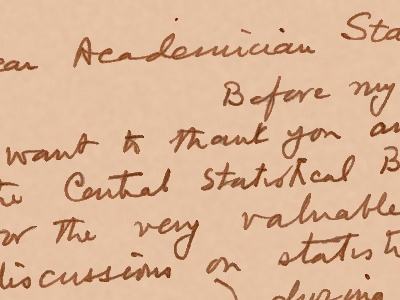 ear Academician Sta
Before my
want to thank you an
he Central Statistical B
or the very valuable
discussions on statisti
during